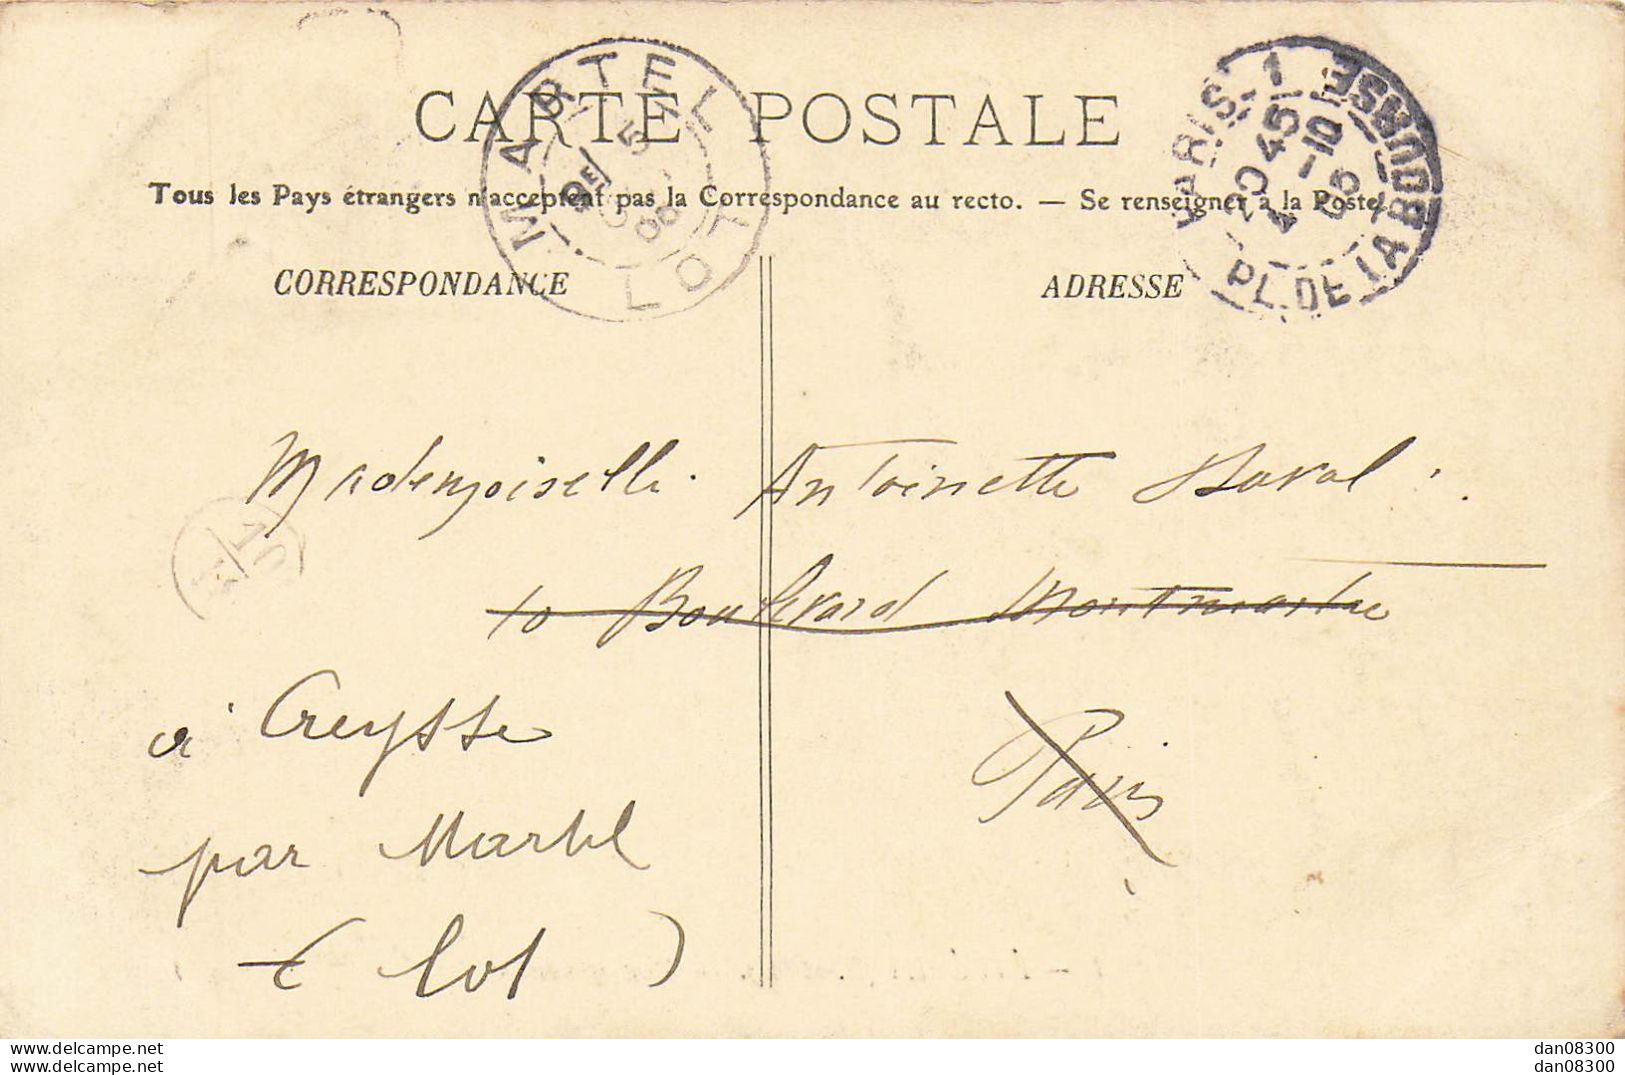 CARTE POSTALE
Tous les Pays étrangers n'acceptent pas la Correspondance au recto. — Se renseigner à la Poste.
MARTEL
LOT
PARIS 1
PL. DE LA BOURSE
20 45
4 - 10
05
CORRESPONDANCE
ADRESSE
Mademoiselle Antoinette
10 Boulevard Montmartre
Paris
à Creysse
par Martel
(Lot)
www.delcampe.net
www.delcampe.net
dan08300
dan08300